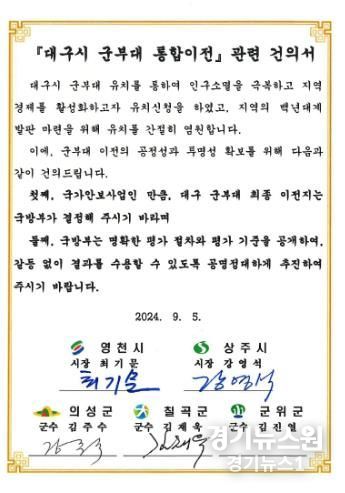 『대구시 군부대 통합이전』 관련 건의서
대구시 군부대 유치를 통하여 인구소멸을 극복하고 지역
경제를 활성화하고자 유치신청을 하였고, 지역의 백년대계
발판 마련을 위해 유치를 간절히 염원합니다.
이에, 군부대 이전의 공정성과 투명성 확보를 위해 다음과
같이 건의드립니다.
첫째, 국가안보사업인 만큼, 대구 군부대 최종 이전지는
국방부가 결정해 주시기 바라며
둘째, 국방부는 명확한 평가 절차와 평가 기준을 공개하여,
갈등 없이 결과를 수용할 수 있도록 공명정대하게 추진하여
주시기 바랍니다.
2024. 9. 5.
영천시 상주시
시장 최기문 시장 강영석
최기문 강영석
의성군 칠곡군 군위군
군수 김주수 군수 김재욱 군수 김진열
경기뉴스원
경기뉴스1